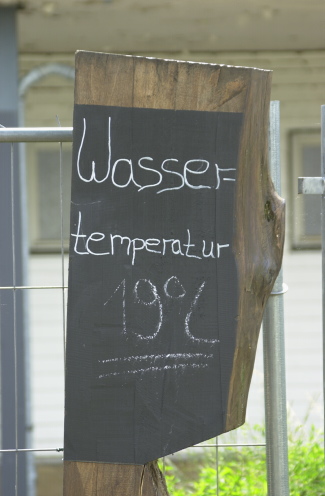 Wasser-
temperatur
19°C